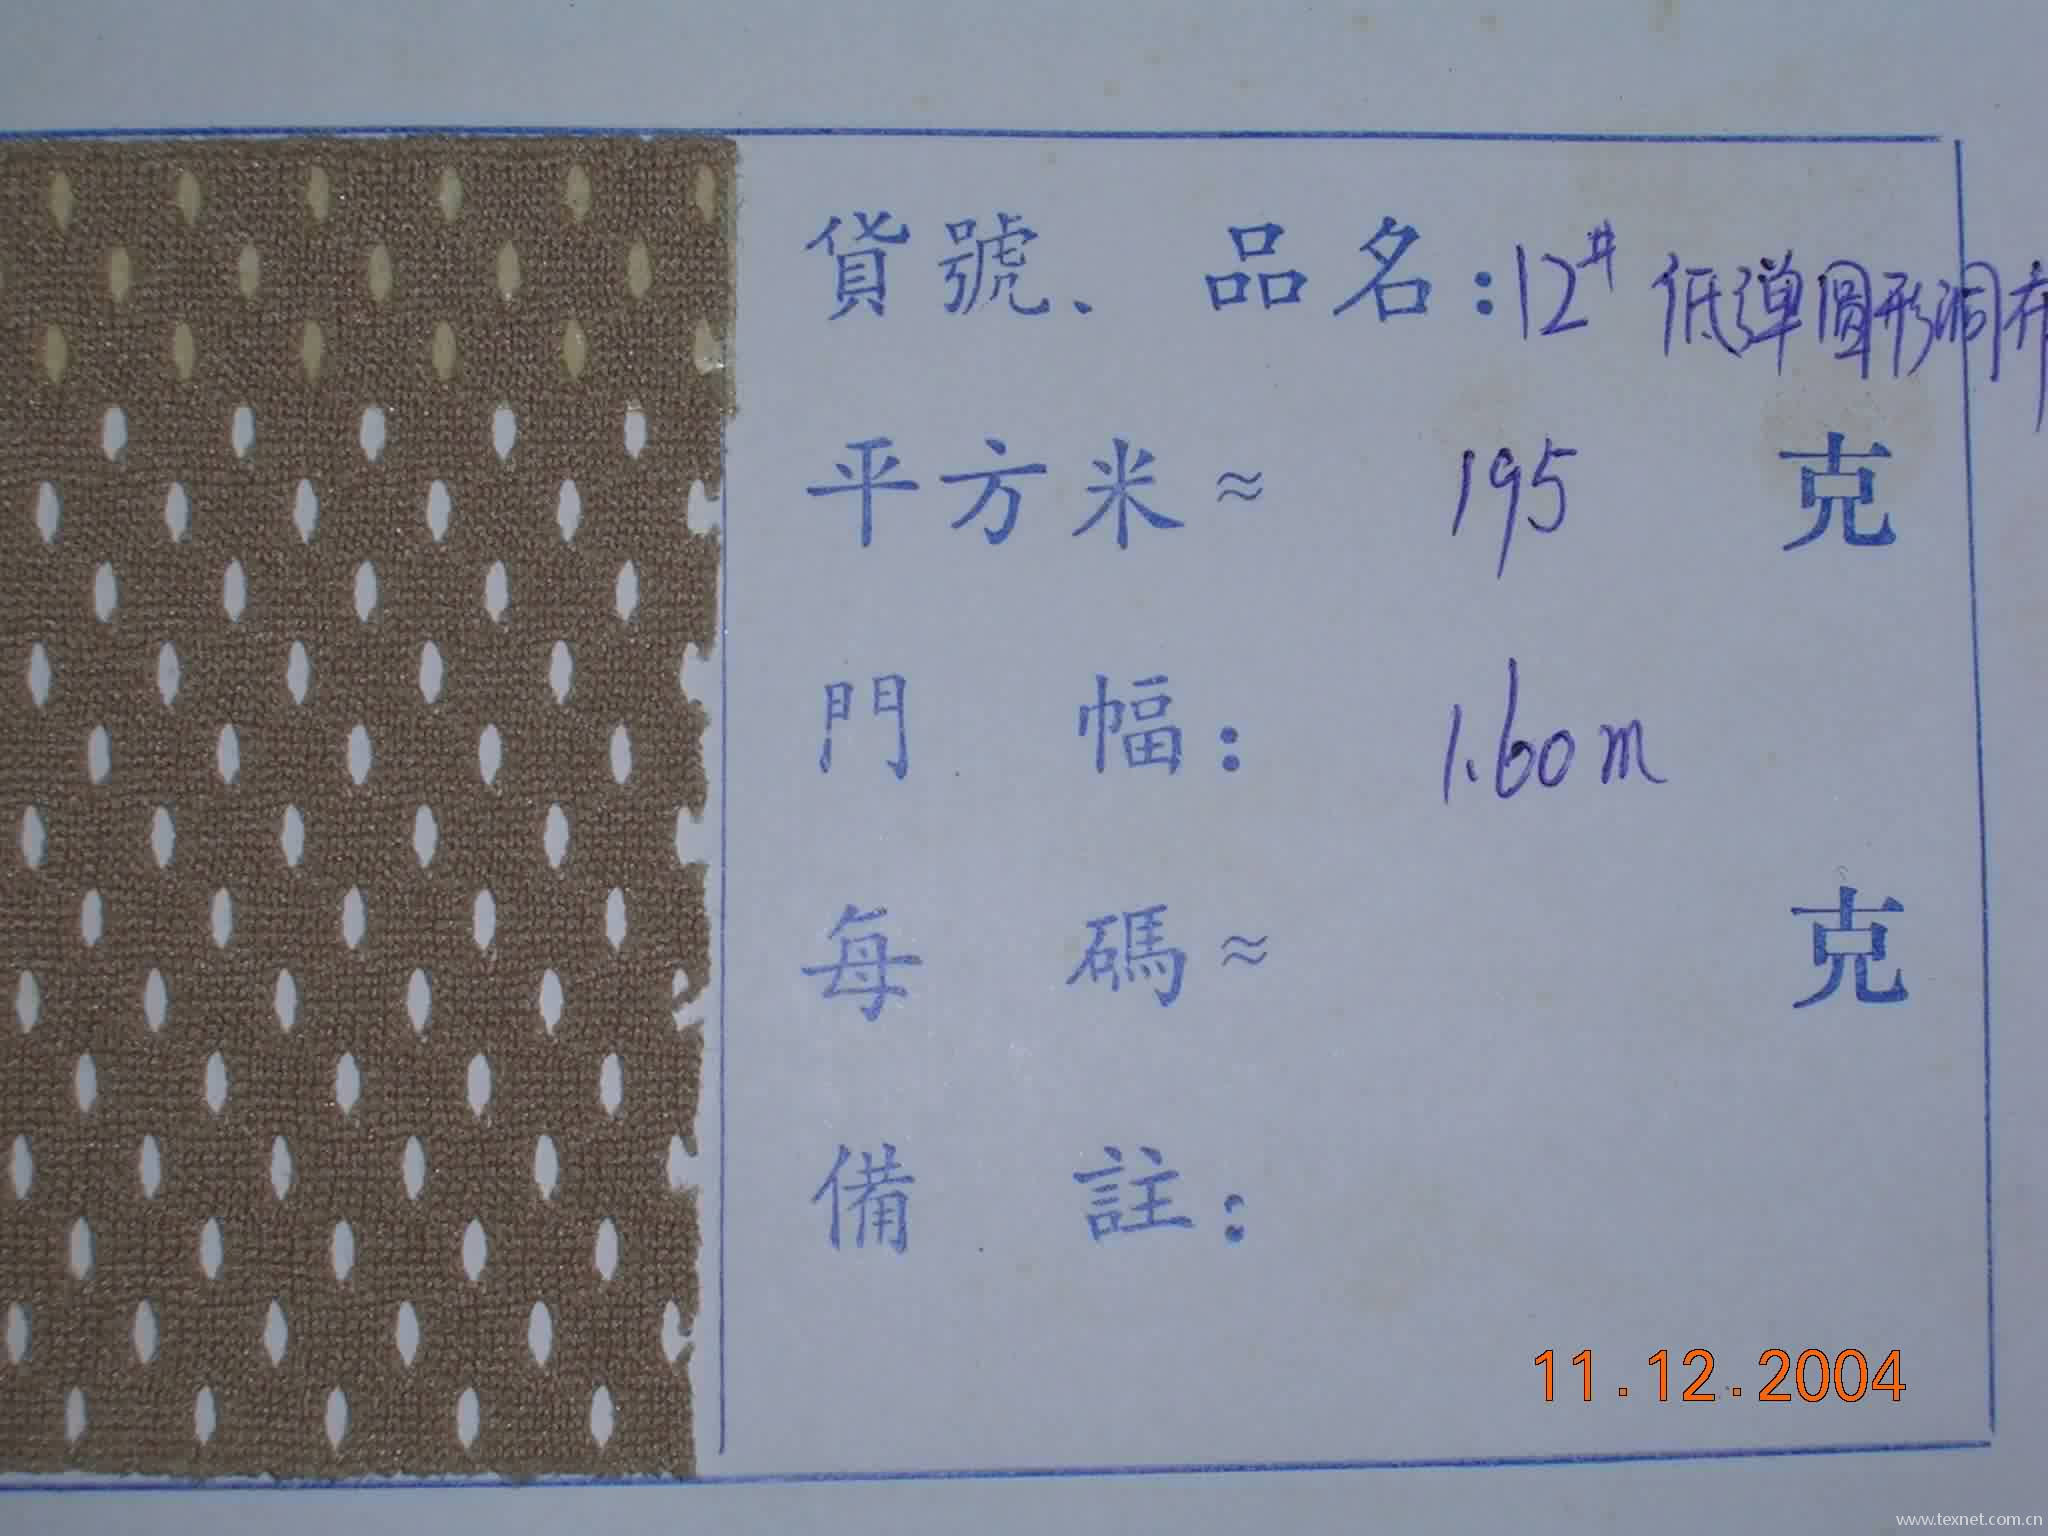 貨號、品名:12# 低弹圆形洞布
平方米≈ 195 克
門幅: 1.60m
每碼≈ 克
備註:
11.12.2004
www.texnet.com.cn